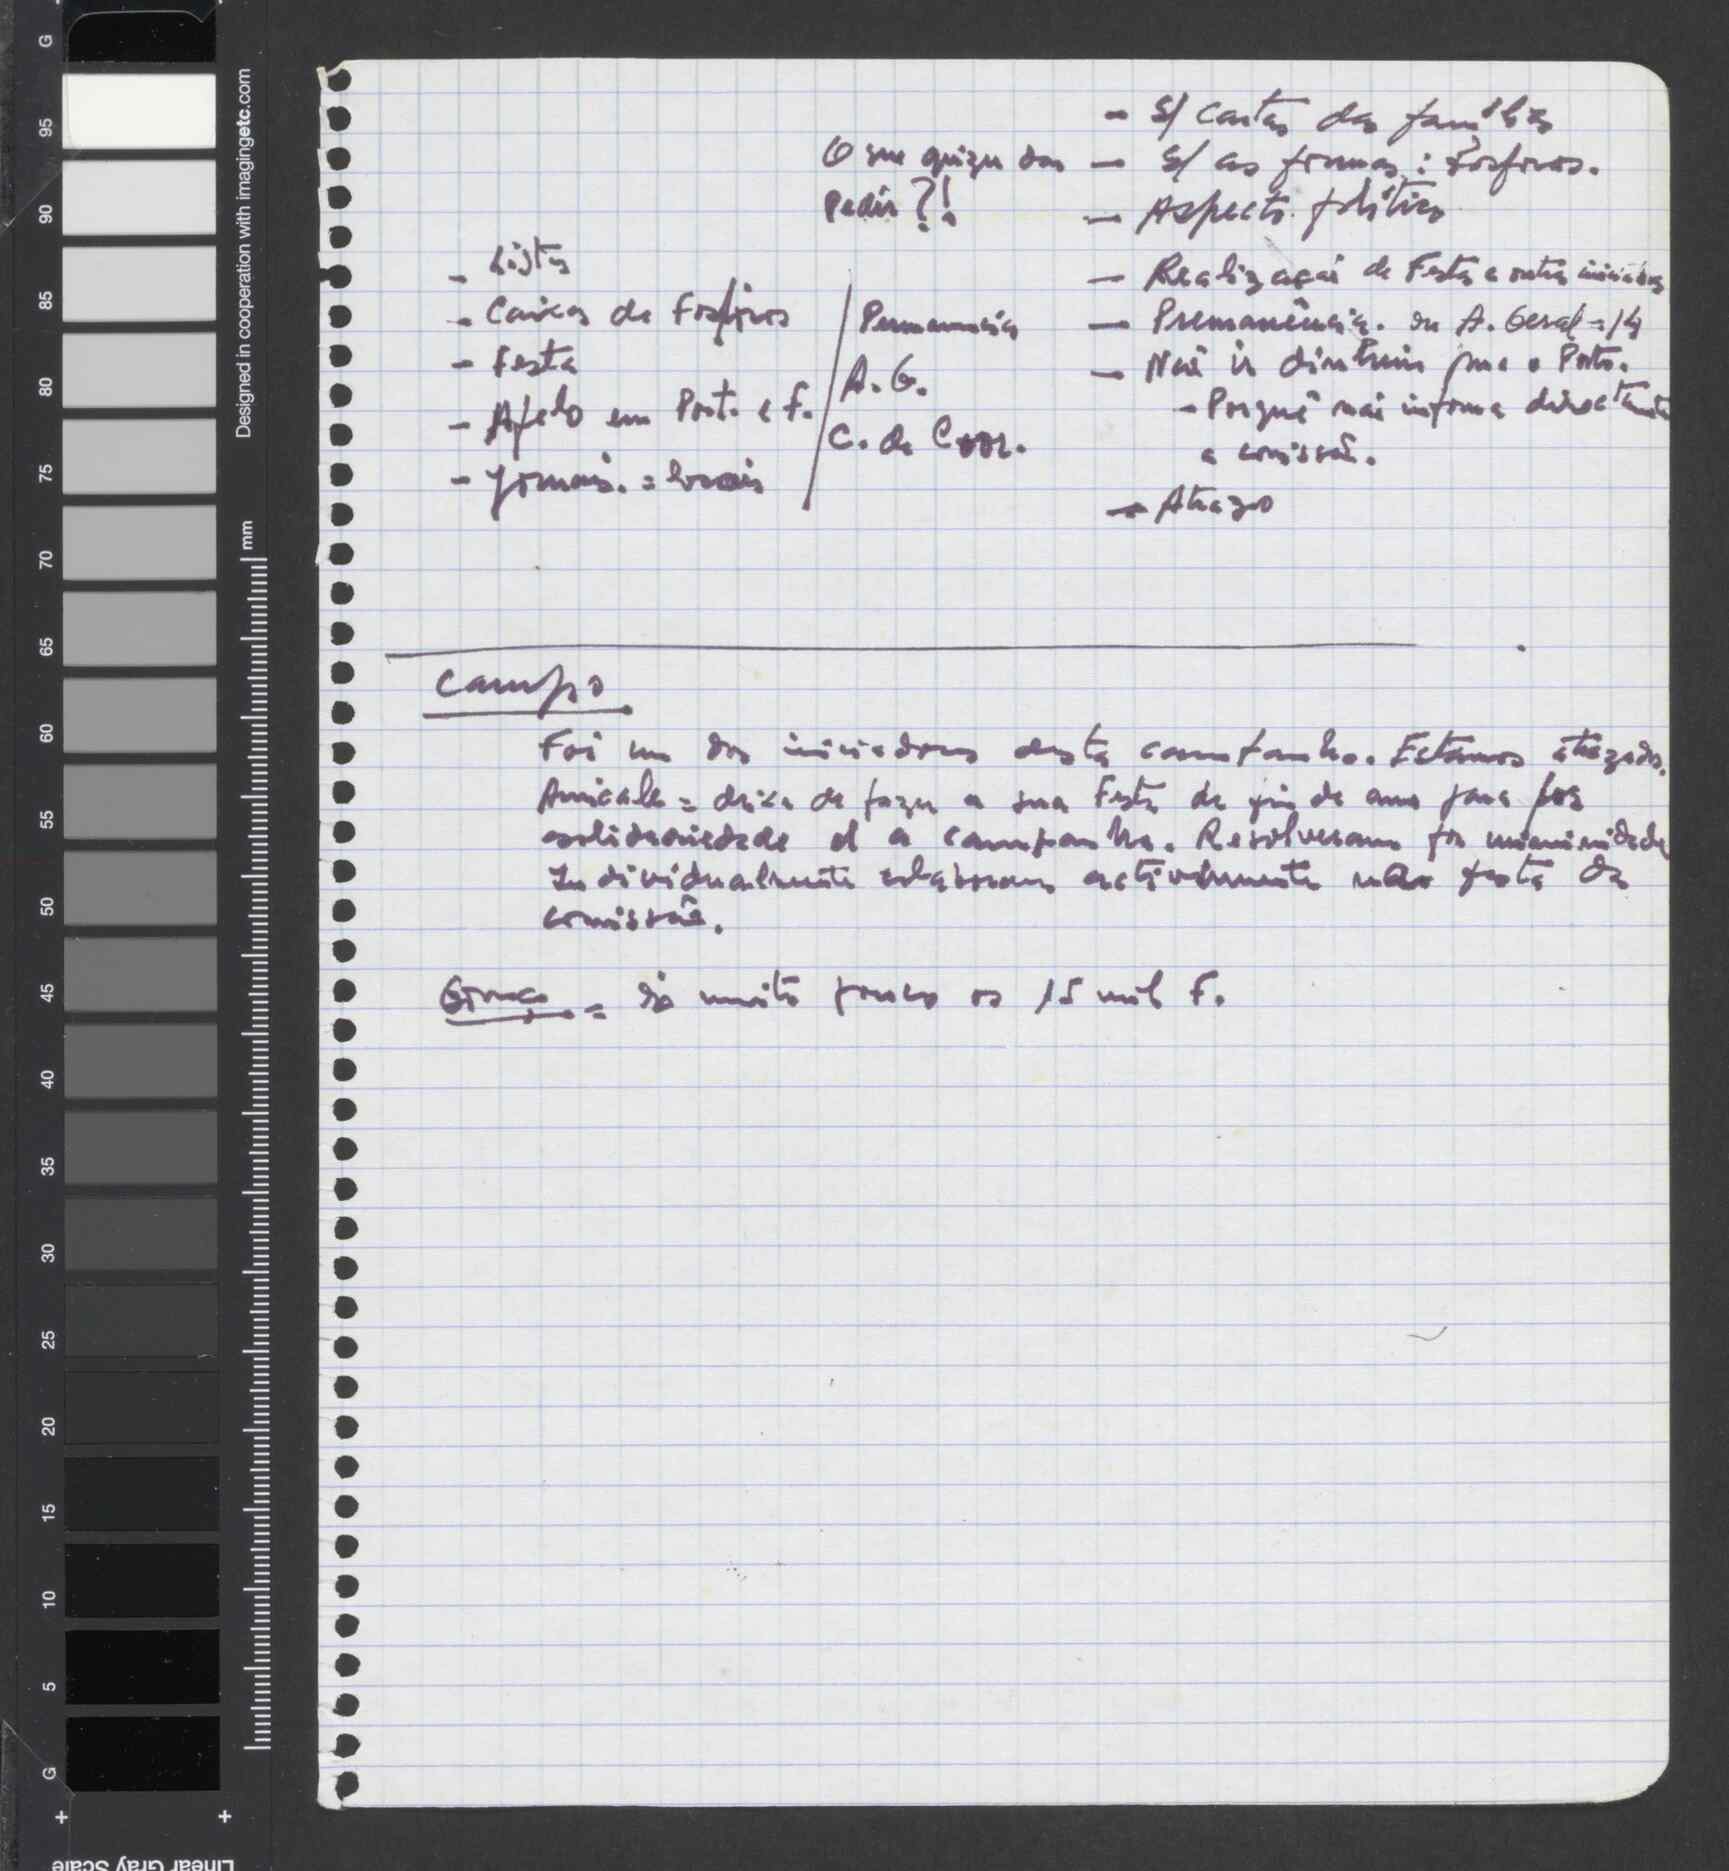 - S/ Cartas das famílias
O que quizer dos
- S/ as formas: Fosforos.
Pedir?!
- Aspecto político
- Listas
- Realização de Festa e outras
- Caixas de Fosforos
Permanencia
- Premanência. ou A. Geral = 14
- Festa
A. G.
- Não ir para o Porto.
- Apelo em Port. e F.
- Porquê não informa directamente
C. de Coor.
a comissão.
- Jornais. = locais
- Atrazo
Campo
Foi um dos iniciadores desta campanha. Estamos atrazados.
Amicale = deixa de fazer a sua Festa de fim de ano para por
solidariedade a campanha. Resolveram por unanimidade
Individualmente colaboram activamente festa da
comissão.
= são muito poucos os 15 mil F.
Designed in cooperation with imagingetc.com
mm
G
95
90
85
80
75
70
65
60
55
50
45
40
35
30
25
20
15
10
5
G
Linear Gray Scale